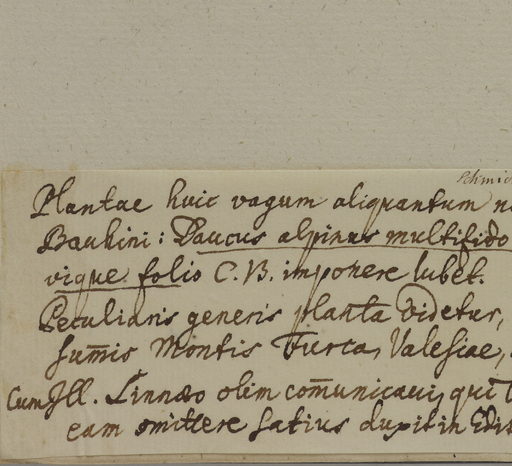 Schmid
Plantae huic vagum aliquantum n
Bauhini: Daucus alpinus multifido
vique folio C. B. imponere lubet.
Peculiaris generis planta videtur,
sum̄is Montis Furca, Valesiae,
Cum Ill. Linnæo olim com̄unicavi, qui
eam omittere satius duxit in Edit